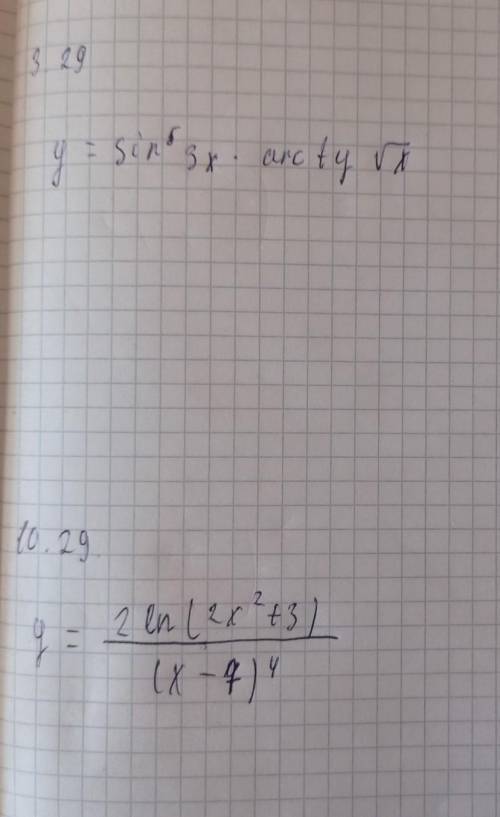 3.29
y = sin⁵ 3x · arctg √x
10.29.
y = 2 ln(2x²+3) / (x - 7)⁴